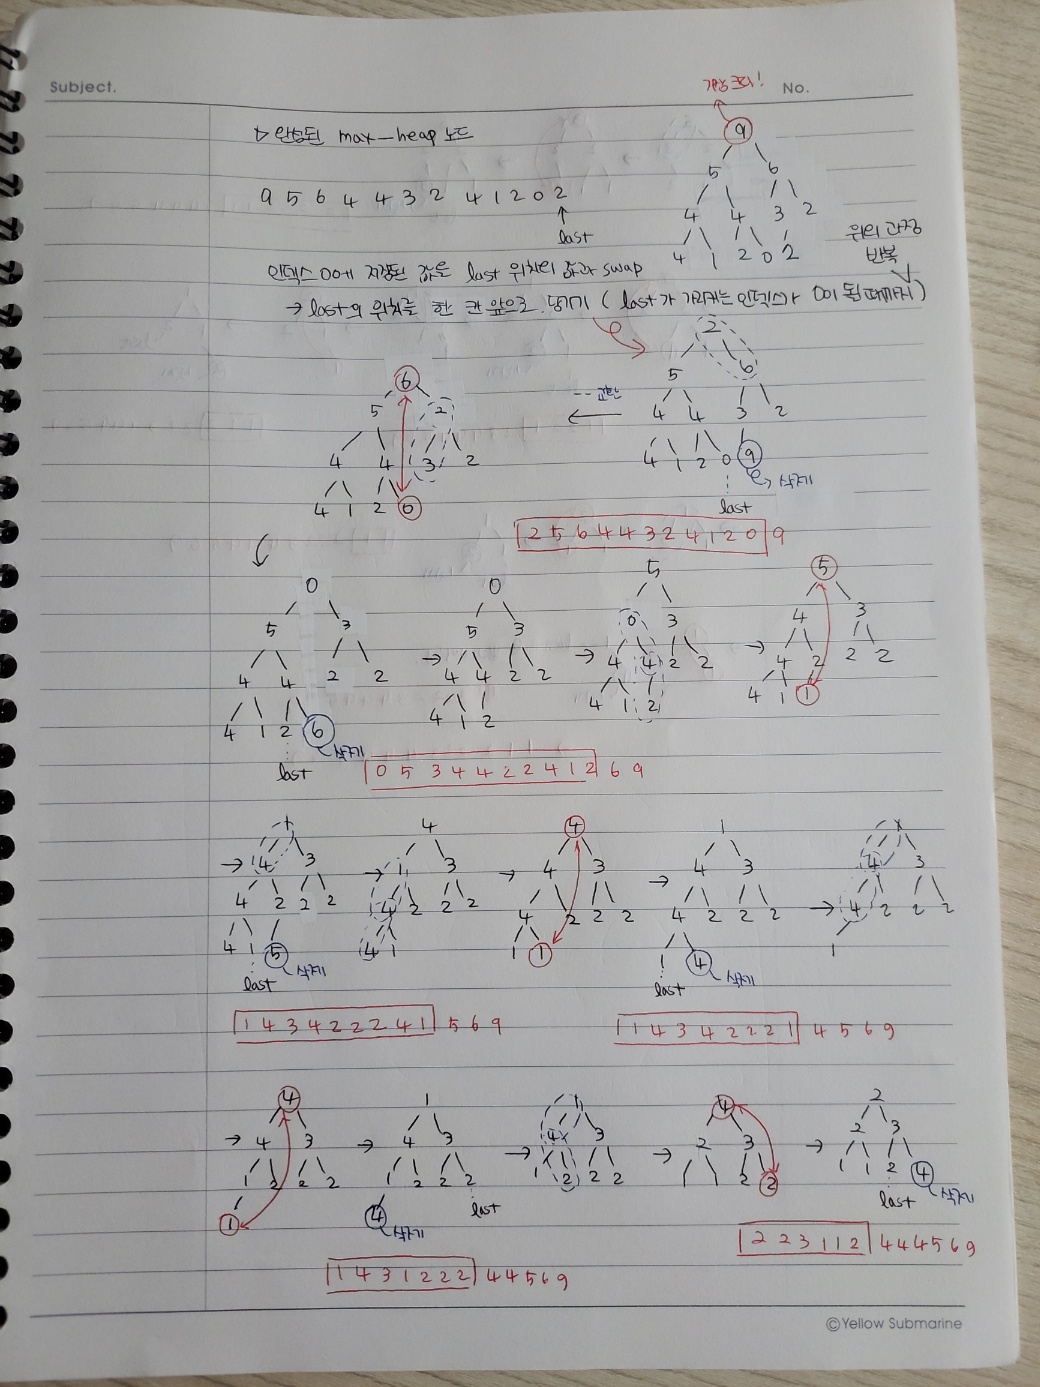 Subject.
가장 크다!
No.
▷ 완성된 max-heap 노드
9 5 6 4 4 3 2 4 1 2 0 2
last
9
5 6
4 4 3 2
4 1 2 0 2
위의 과정
반복
인덱스 0에 저장된 값을 last 위치의 값과 swap
→ last의 위치를 한 칸 앞으로 당기기 ( last가 가리키는 인덱스가 0이 될 때까지 )
2
5 6
4 4 3 2
4 1 2 0 9
삭제
last
← 교환
6
5 2
4 4 3 2
4 1 2 0
2 5 6 4 4 3 2 4 1 2 0 9
0
5 3
4 4 2 2
4 1 2 6
삭제
last
→
0
5 3
4 4 2 2
4 1 2
→
5
0 3
4 4 2 2
4 1 2
→
5
4 3
4 2 2 2
4 1 1
0 5 3 4 4 2 2 4 1 2 6 9
→
1
4 3
4 2 2 2
4 1 5
삭제
last
→
4
1 3
4 2 2 2
4 1
→
4
4 3
4 2 2 2
1 1
→
1
4 3
4 2 2 2
1 4
삭제
last
→
1
4 3
4 2 2 2
1
1 4 3 4 2 2 2 4 1 5 6 9
1 4 3 4 2 2 2 1 4 5 6 9
→
4
4 3
1 2 2 2
1
→
1
4 3
1 2 2 2
4
삭제
last
→
1
4 3
1 2 2 2
→
4
2 3
1 1 2 2
→
2
2 3
1 1 2 4
삭제
last
1 4 3 1 2 2 2 4 4 5 6 9
2 2 3 1 1 2 4 4 4 5 6 9
©Yellow Submarine